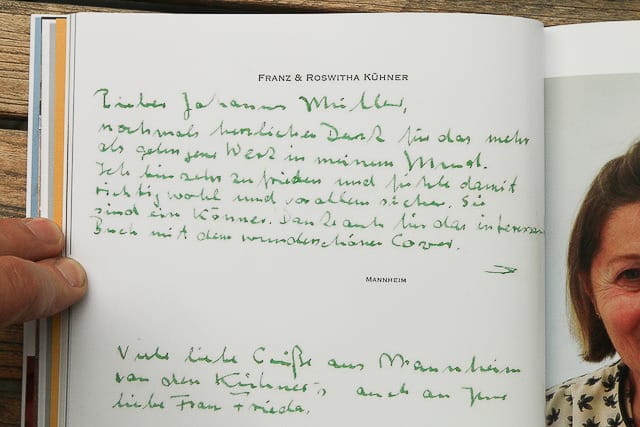 FRANZ & ROSWITHA KÜHNER
Lieber Johannes Müller,
nochmals herzlichen Dank für das mehr
als gelungene Werk in meinem Mund.
Ich bin sehr zufrieden und fühle damit
richtig wohl und vor allem sicher. Sie
sind ein Könner. Danke auch für das interessan
Buch mit dem wunderschönen Cover.
MANNHEIM
Viele liebe Grüße aus Mannheim
von den Kühner's auch an Ihre
liebe Frau Frieda.